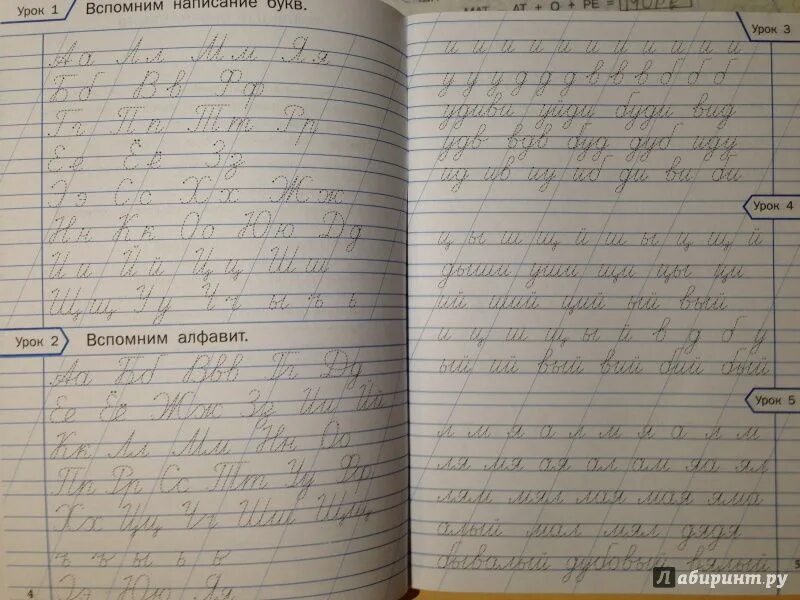 Урок 1
Вспомним написание букв.
Аа Лл Мм Яя
Бб Вв Фф
Гг Пп Тт Рр
Ее Ёё Зз
Ээ Сс Хх Жж
Нн Кк Оо Юю Дд
Ии Йй Цц Шш
Щщ Уу Чч ы ъ ь
Урок 2
Вспомним алфавит.
Аа Бб Вв Гг Дд
Ее Ёё Жж Зз Ии Йй
Кк Лл Мм Нн Оо
Пп Рр Сс Тт Уу Фф
Хх Цц Чч Шш Щщ
ъ ъ ы ь
Ээ Юю Яя
4
МАТ АТ + О + РЕ = МОРЕ
Урок 3
и и и и и и и и и и й
у у у д д д в в в б б б
удиви уйди буди вид
удв вдв буд дуб иду
ид ив иу иб ди ви би
Урок 4
ц ы ш щ й ш ы ц щ й
дыши уши щи цы ци
ий ший щий ый вый
и ц ш щ ы й в д б у
ый ий вый вий бий бый
Урок 5
л м я а л м я а л м
ля мя ая ал ам яа ял
лям мял мая мая яма
алый мал мял дядя
бывалый дубовый вялый
5
Лабиринт.ру